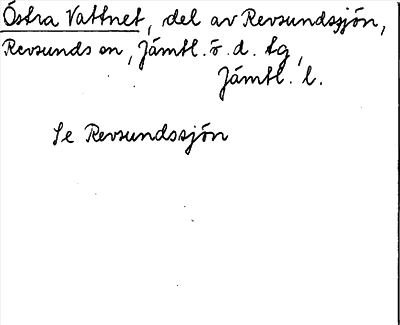 Östra Vattnet, del av Revsundssjön,
Revsunds sn, Jämtl. ö. d. tg,
Jämtl. l.
Se Revsundssjön